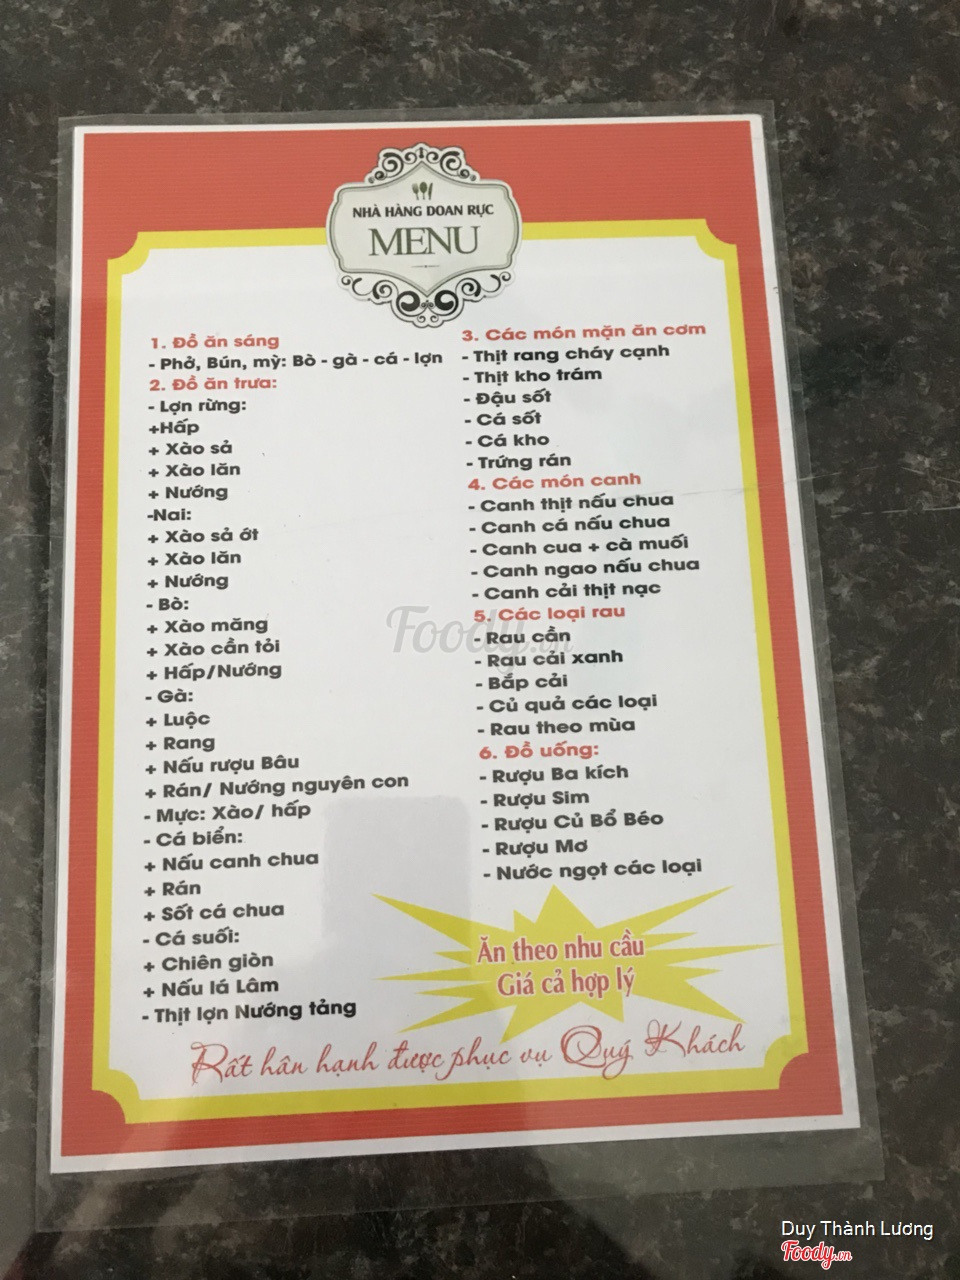 NHÀ HÀNG DOAN RỰC
MENU
1. Đồ ăn sáng
- Phở, Bún, mỳ: Bò - gà - cá - lợn
2. Đồ ăn trưa:
- Lợn rừng:
+Hấp
+ Xào sả
+ Xào lăn
+ Nướng
-Nai:
+ Xào sả ớt
+ Xào lăn
+ Nướng
- Bò:
+ Xào măng
+ Xào cần tỏi
+ Hấp/Nướng
- Gà:
+ Luộc
+ Rang
+ Nấu rượu Bâu
+ Rán/ Nướng nguyên con
- Mực: Xào/ hấp
- Cá biển:
+ Nấu canh chua
+ Rán
+ Sốt cá chua
- Cá suối:
+ Chiên giòn
+ Nấu lá Lâm
- Thịt lợn Nướng tảng
3. Các món mặn ăn cơm
- Thịt rang cháy cạnh
- Thịt kho trám
- Đậu sốt
- Cá sốt
- Cá kho
- Trứng rán
4. Các món canh
- Canh thịt nấu chua
- Canh cá nấu chua
- Canh cua + cà muối
- Canh ngao nấu chua
- Canh cải thịt nạc
5. Các loại rau
- Rau cần
- Rau cải xanh
- Bắp cải
- Củ quả các loại
- Rau theo mùa
6. Đồ uống:
- Rượu Ba kích
- Rượu Sim
- Rượu Củ Bổ Béo
- Rượu Mơ
- Nước ngọt các loại
Ăn theo nhu cầu
Giá cả hợp lý
Rất hân hạnh được phục vụ Quý Khách
Foody.vn
Duy Thành Lương
Foody.vn